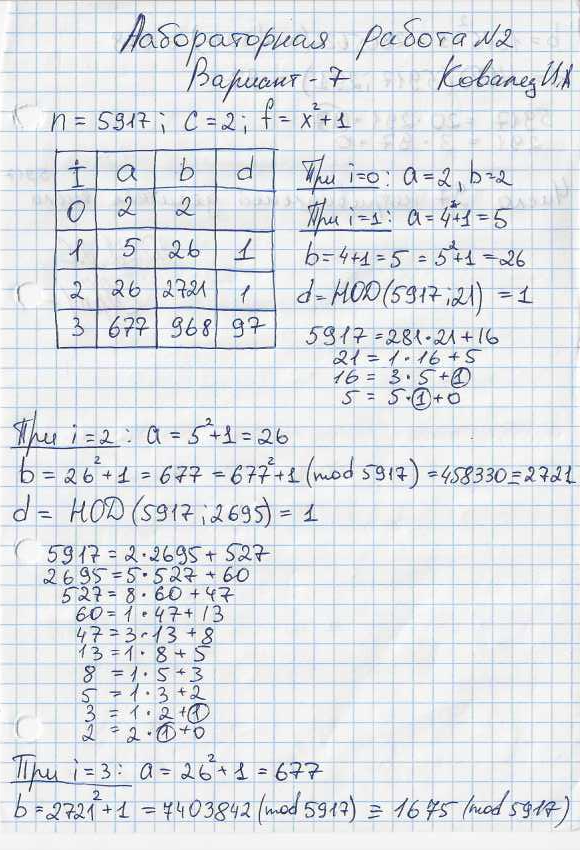 Лабораторная работа №2
Вариант - 7 Ковалец И.А
n = 5917 ; c = 2 ; f = x²+1
i a b d
0 2 2
1 5 26 1
2 26 2721 1
3 677 968 97
При i=0: a=2, b=2
При i=1: a=4²+1=5
b=4+1=5 = 5²+1=26
d=НОД(5917;21) =1
5917=281·21+16
21 = 1·16+5
16 = 3·5+1
5 = 5·1+0
При i=2: a=5²+1=26
b=26²+1=677=677²+1(mod 5917)=458330≡2721
d= НОД(5917;2695)=1
5917=2·2695+527
2695=5·527+60
527=8·60+47
60=1·47+13
47=3·13+8
13=1·8+5
8 =1·5+3
5 =1·3+2
3 =1·2+1
2 =2·1+0
При i=3: a=26²+1=677
b=2721²+1=7403842(mod 5917)≡1675(mod 5917)